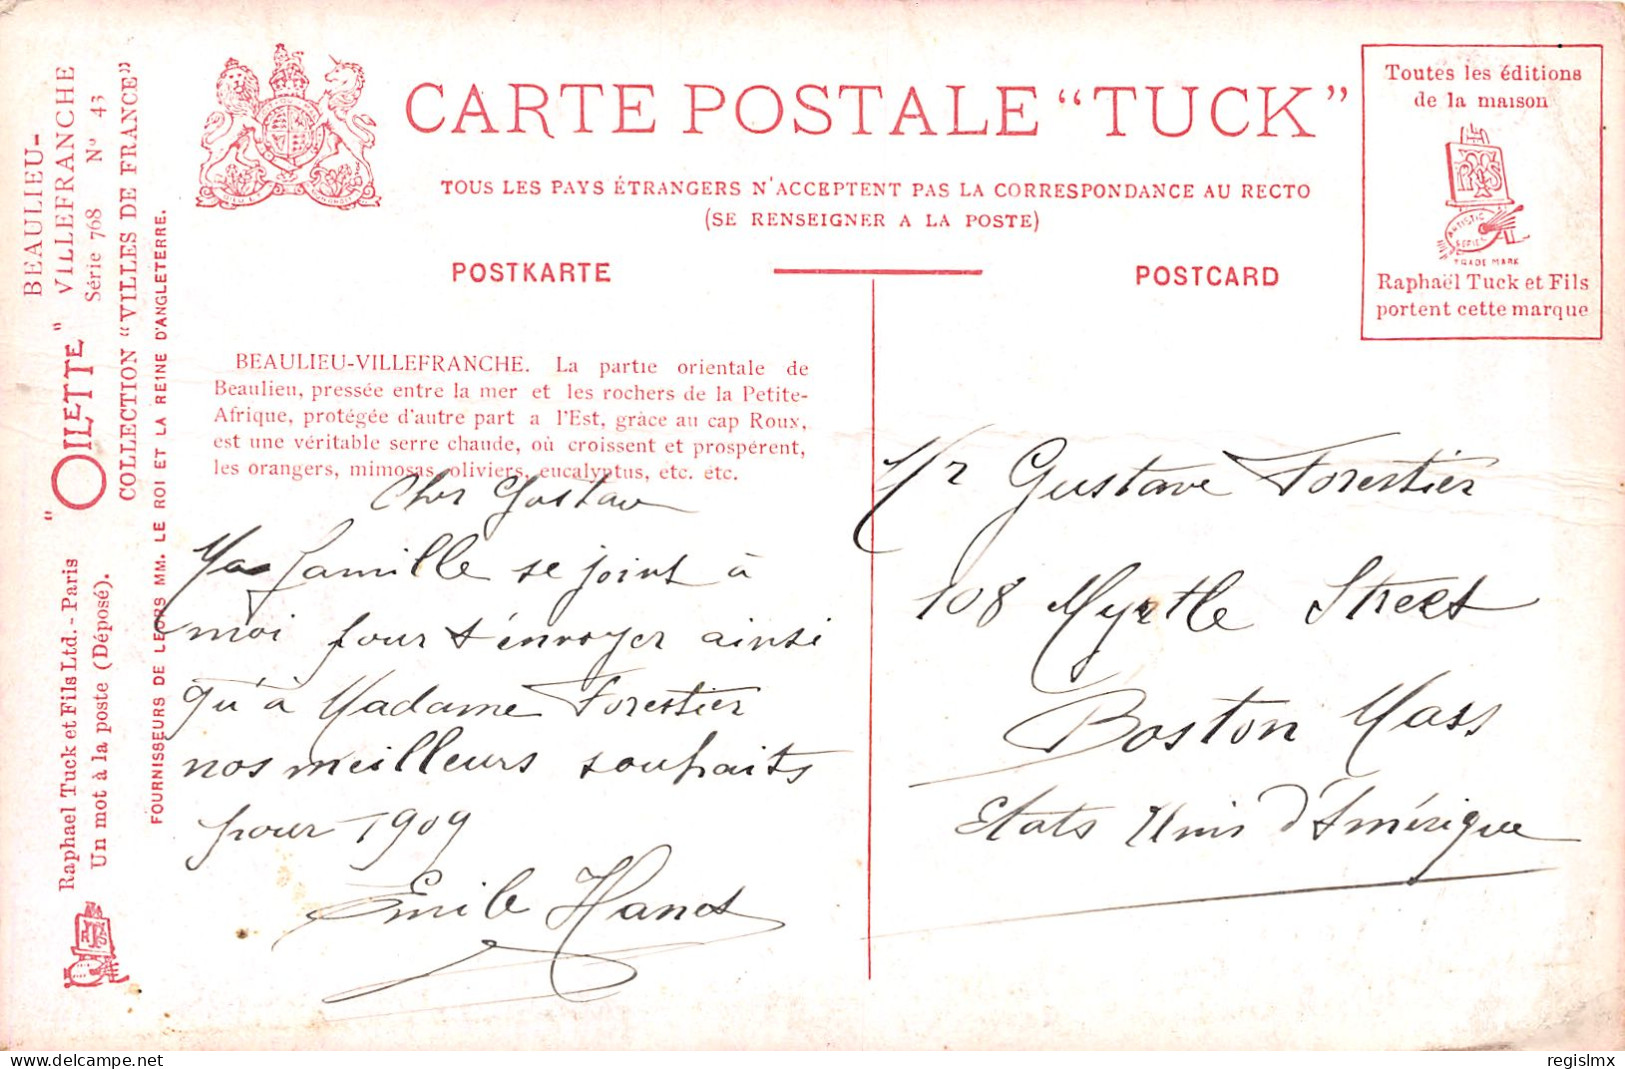 BEAULIEU-
VILLEFRANCHE
Série 768 Nº 43
"OILETTE"
COLLECTION "VILLES DE FRANCE"
Raphael Tuck et Fils Ltd. - Paris
Un mot à la poste (Déposé).
FOURNISSEURS DE LEURS MM. LE ROI ET LA REINE D'ANGLETERRE.
CARTE POSTALE "TUCK"
TOUS LES PAYS ÉTRANGERS N'ACCEPTENT PAS LA CORRESPONDANCE AU RECTO
(SE RENSEIGNER A LA POSTE)
POSTKARTE
POSTCARD
Toutes les éditions
de la maison
ARTISTIC
SERIES
TRADE MARK
Raphaël Tuck et Fils
portent cette marque
BEAULIEU-VILLEFRANCHE. La partie orientale de
Beaulieu, pressée entre la mer et les rochers de la Petite-
Afrique, protégée d'autre part a l'Est, grâce au cap Roux,
est une véritable serre chaude, où croissent et prospèrent,
les orangers, mimosas, oliviers, eucalyptus, etc. etc.
Cher Gustav
Ma famille se joint à
moi pour t'envoyer ainsi
qu'à Madame Forestier
nos meilleurs souhaits
pour 1909
Emile
Mr Gustave Forestier
108 Myrtle Street
Boston Mass
Etats Unis d'Amérique
regislmx
delcampe.net